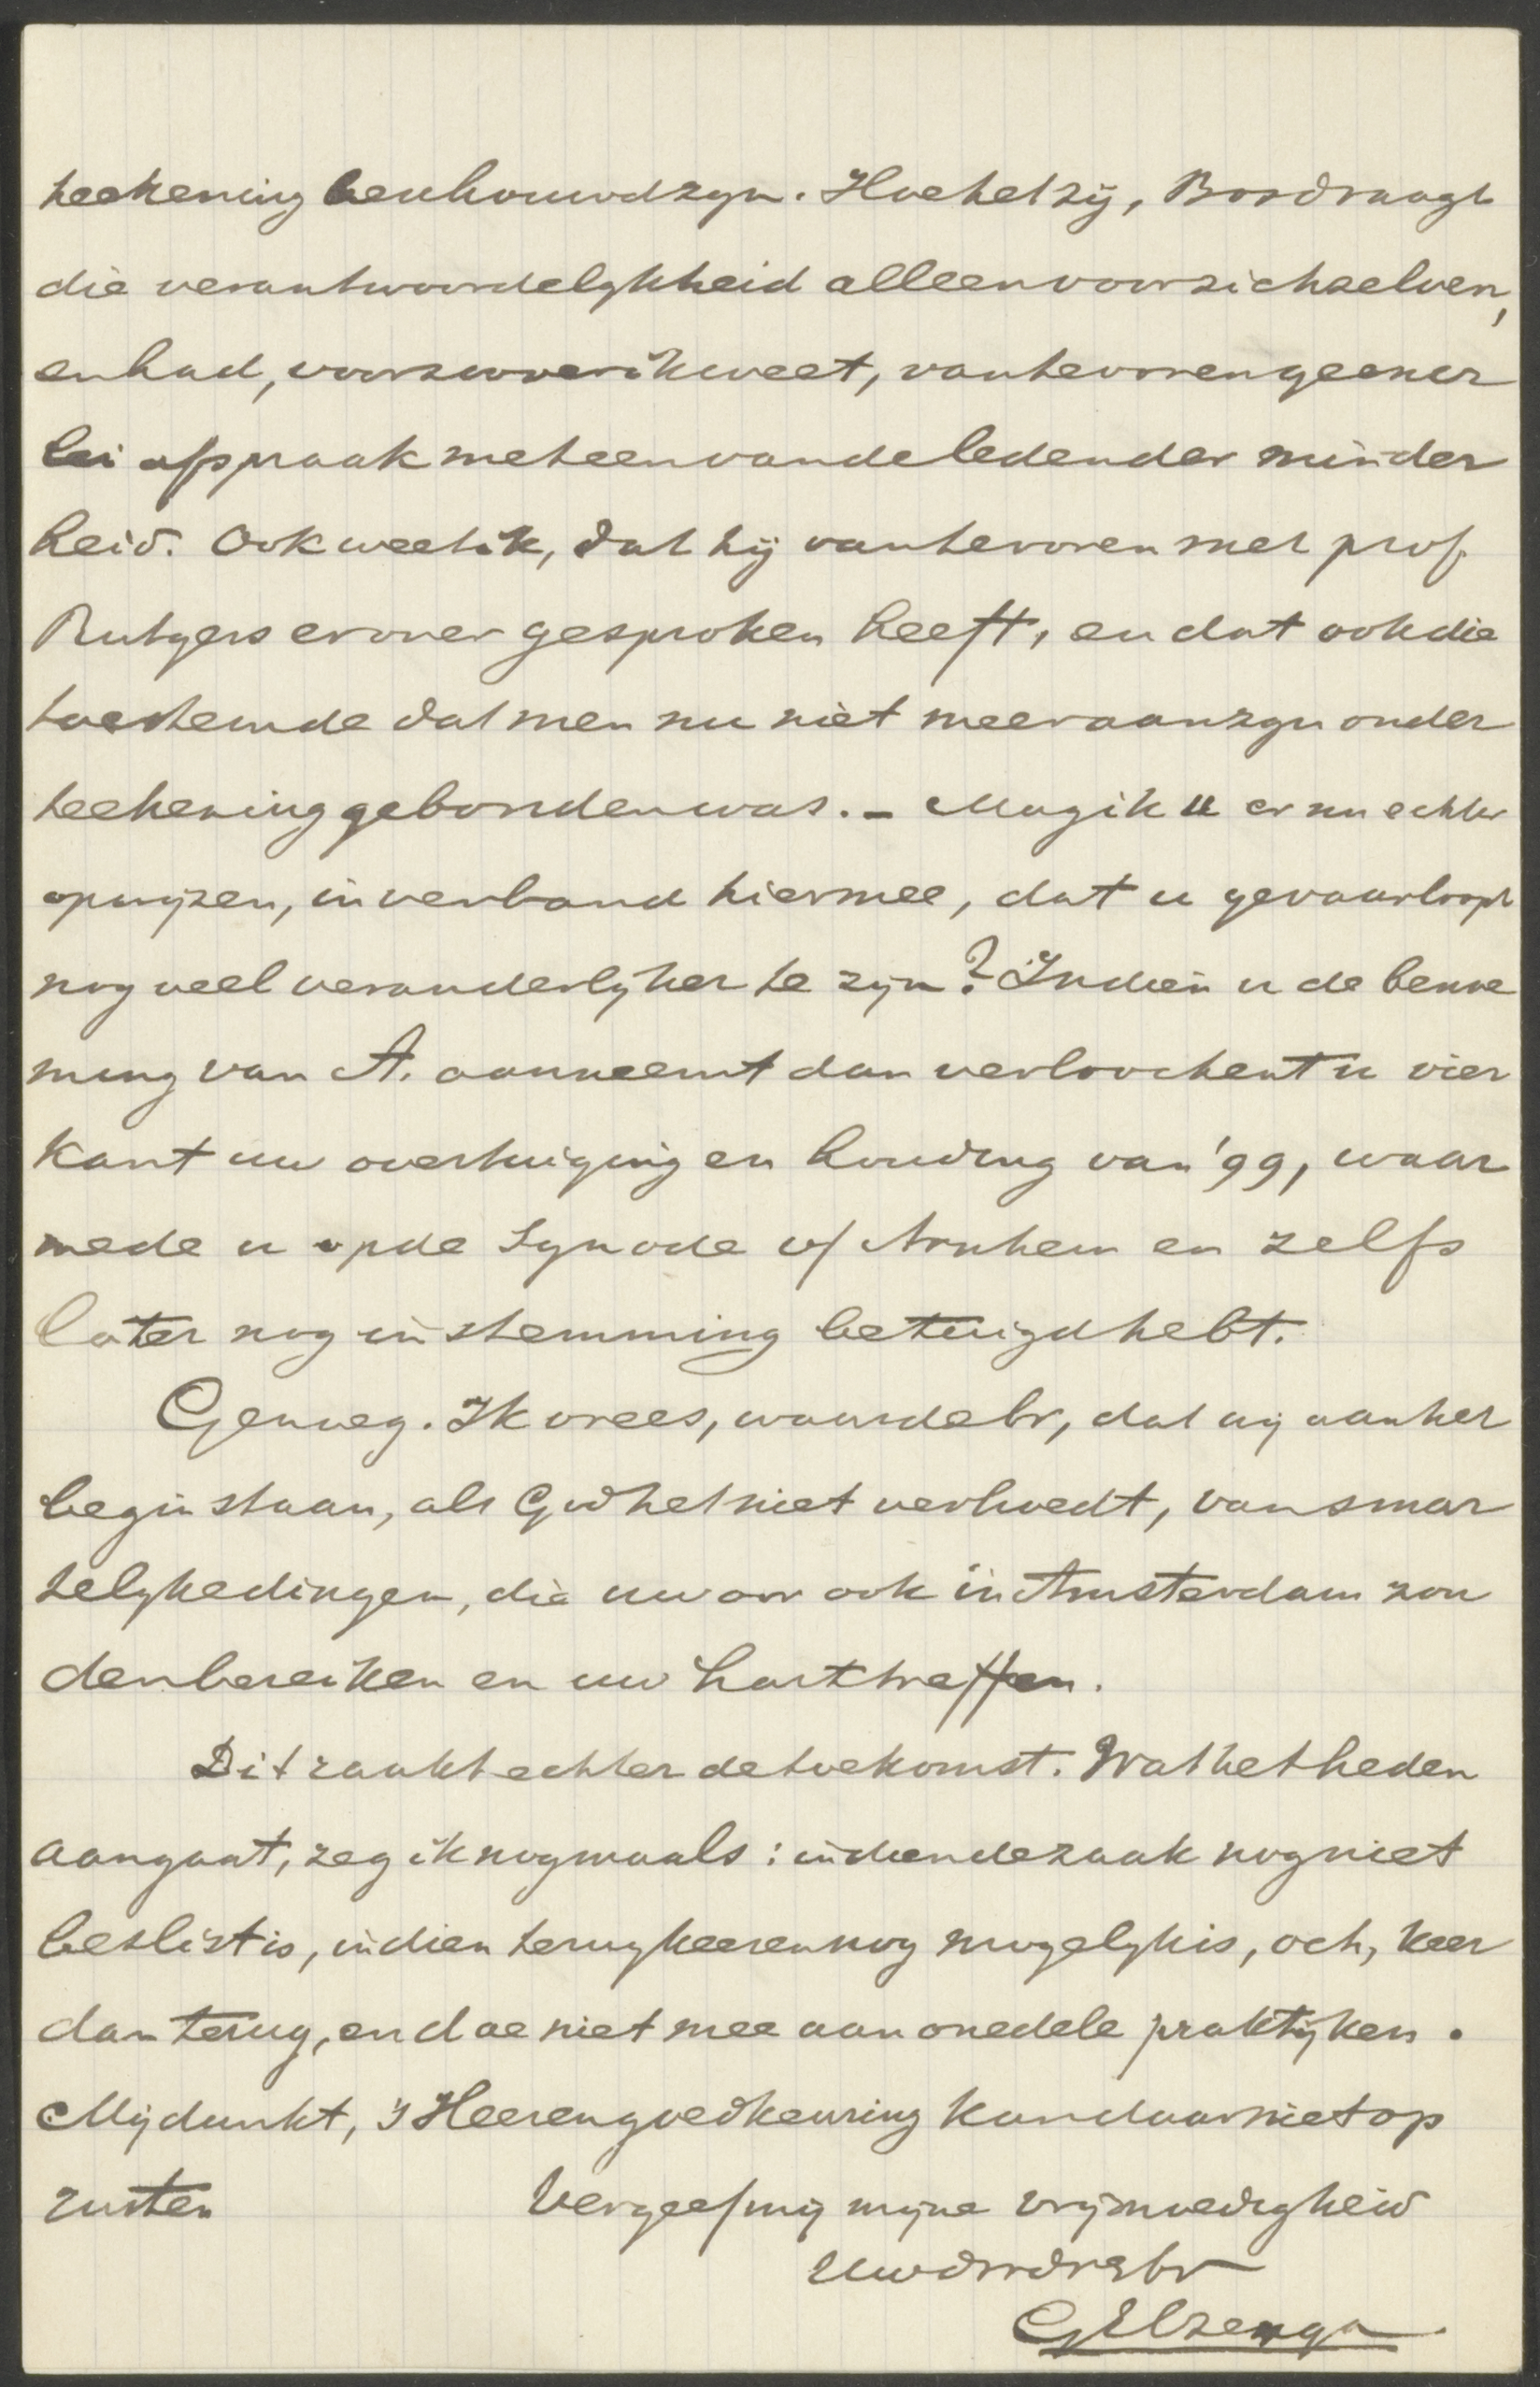 teekening benhouwd zyn. Hoe het zij, Bos draagt
die verantwoordelykheid alleen voor zichzelven,
en had, voorzoover ik weet, van tevoren geener
lei afspraak met een van de leden der minder
heid. Ook weet ik, dat hij van tevoren met prof.
Rutgers erover gesproken heeft, en dat ook die
toestemde dat men nu niet meer aan zyn onder
teekening gebonden was. – Mag ik u er nu echter
op wijzen, in verband hiermee, dat u gevaar loopt
nog veel veranderlijker te zijn? Indien u de benoe
ming van A. aanneemt dan verloochent u vier
kant uw overtuiging en houding van '99, waar
mede u op de Synode v/ Arnhem en zelfs
later nog instemming betuigd hebt.
Genoeg. Ik vrees, waarde br, dat wij aan het
begin staan, als God het niet verhoedt, van smar
telyke dingen, die uw oor ook in Amsterdam zou
den bereiken en uw hart treffen.
Dit raakt echter de toekomst. Wat het heden
aangaat, zeg ik nogmaals: indien de zaak nog niet
beslist is, indien terugkeeren nog mogelyk is, och, keer
dan terug, en doe niet mee aan onedele praktijken.
Mij dunkt, 's Heeren goedkeuring kan daar niet op
rusten Vergeef mij mijne vrijmoedigheid
Uw dw dr br
G Elzenga.